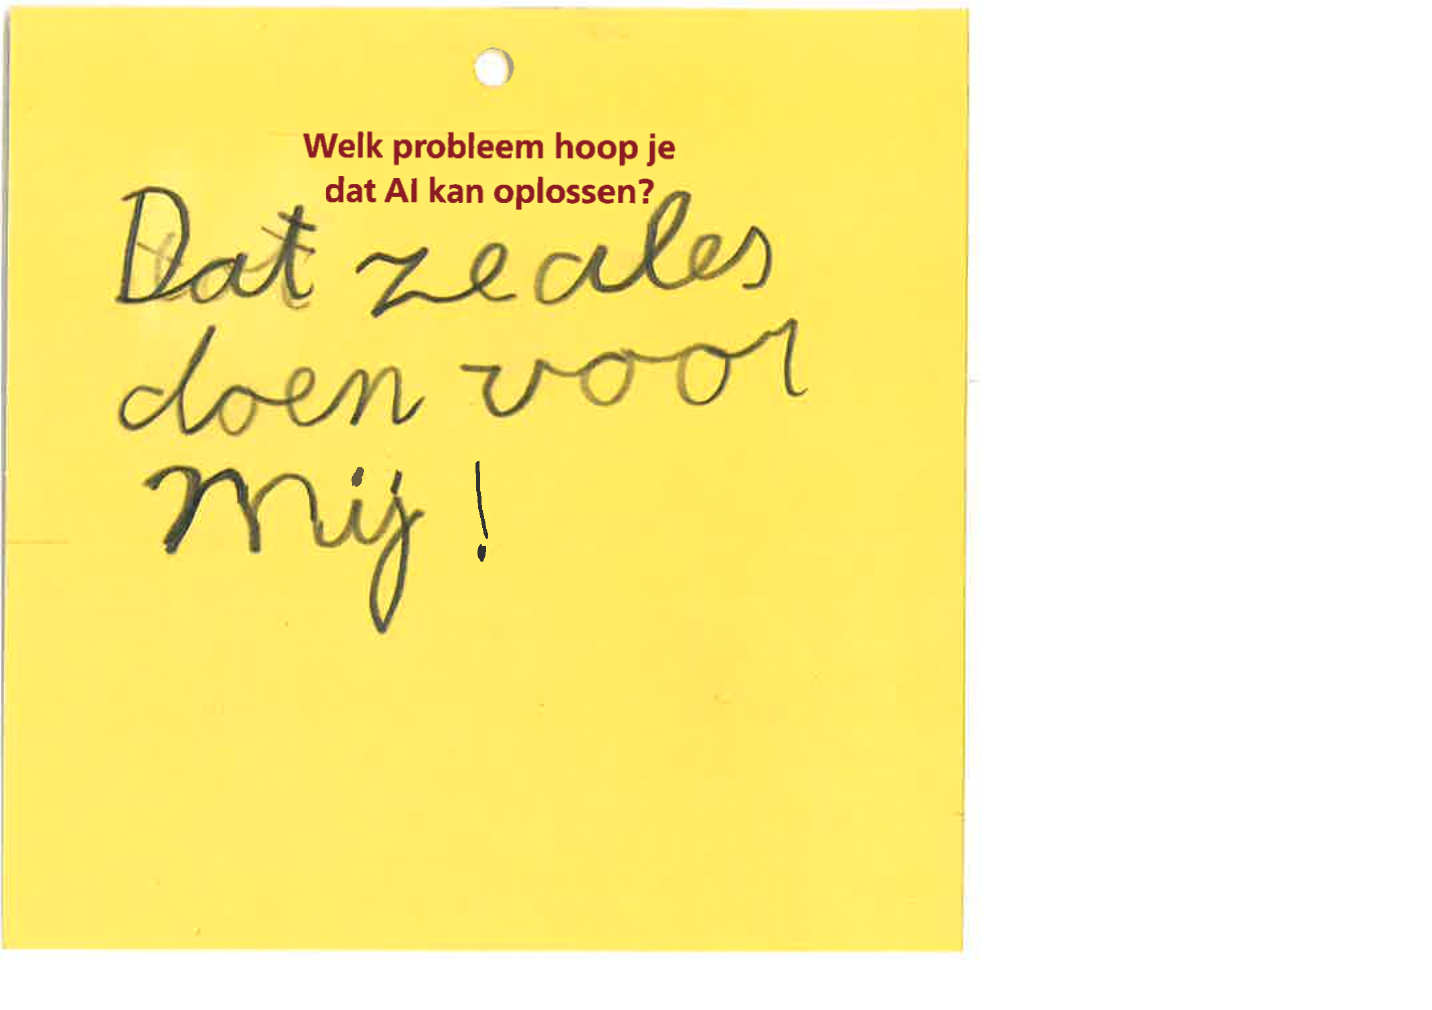 Welk probleem hoop je
dat AI kan oplossen?
Dat ze ales
doen voor
mij!